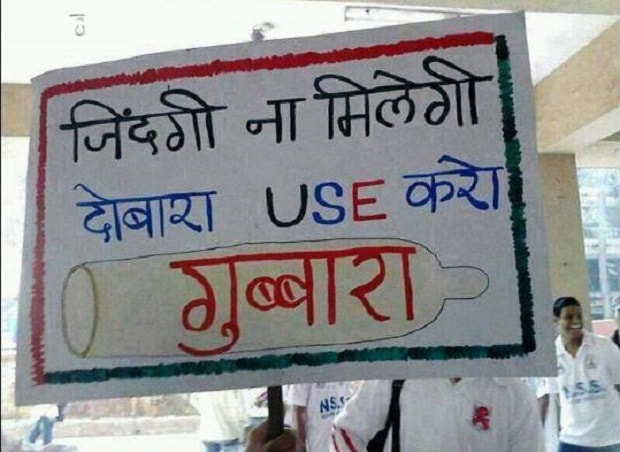 जिंदगी ना मिलेगी
दोबारा USE करो
गुब्बारा
N.S.S
N.S.S